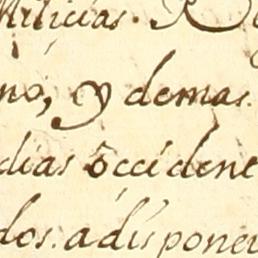 Milicias. R
no, y demas.
dias òccident
dos. a dis poner